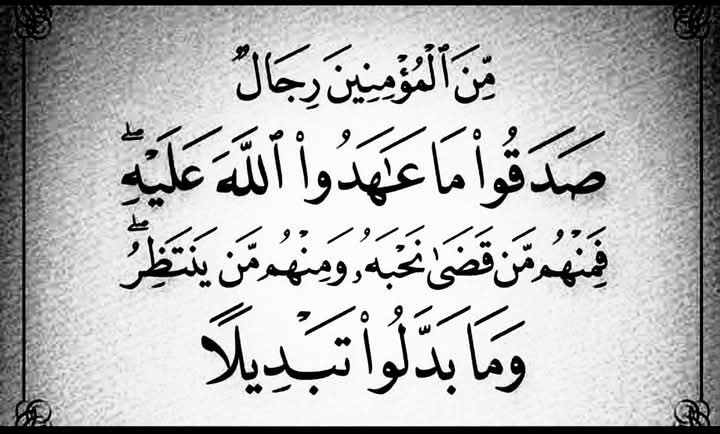 مِّنَ ٱلْمُؤْمِنِينَ رِجَالٌ
صَدَقُوا۟ مَا عَـٰهَدُوا۟ ٱللَّهَ عَلَيْهِ ۖ
فَمِنْهُم مَّن قَضَىٰ نَحْبَهُۥ وَمِنْهُم مَّن يَنتَظِرُ ۖ
وَمَا بَدَّلُوا۟ تَبْدِيلًا